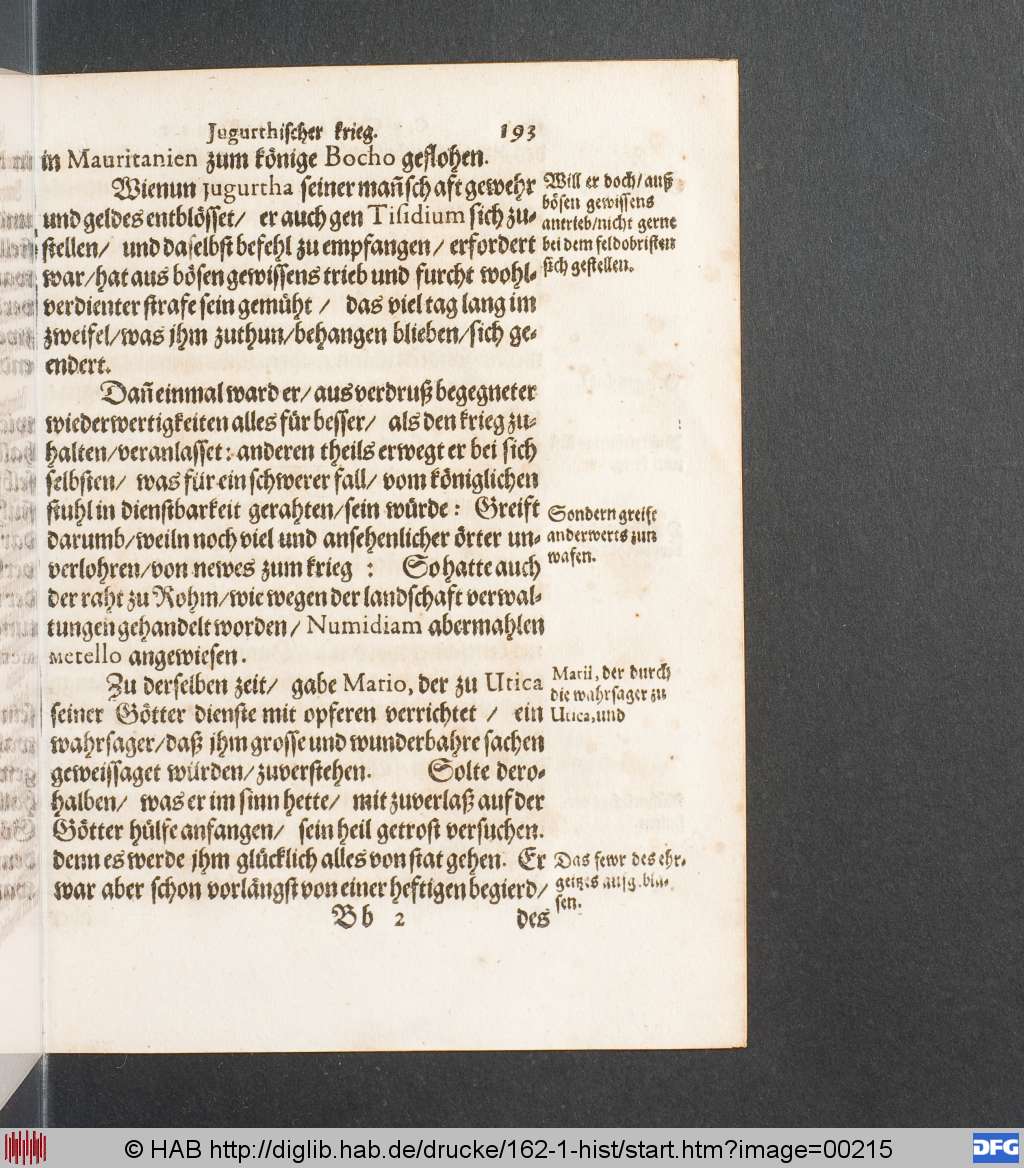 Jugurthischer krieg. 193
in Mauritanien zum könige Bocho geflohen.
Wienun Jugurtha seiner mañschaft gewehr
und geldes entblösset/ er auch gen Tisidium sich zu-
stellen/ und daselbst befehl zu empfangen/ erfordert
war/hat aus bösen gewissens trieb und furcht wohl-
verdienter strafe sein gemüht / das viel tag lang im
zweifel/was jhm zuthun/behangen blieben/sich ge-
endert.
Will er doch/auß
bösen gewissens
antrieb/nicht gerne
bei dem feldobristen
sich gestellen.
Dañ einmal ward er/ aus verdruß begegneter
wiederwertigkeiten alles für besser/ als den krieg zu-
halten/veranlasset: anderen theils erwegt er bei sich
selbsten/ was für ein schwerer fall/ vom königlichen
stuhl in dienstbarkeit gerahten/sein würde: Greift
darumb/weiln noch viel und ansehenlicher örter un-
verlohren/von newes zum krieg : So hatte auch
der raht zu Rohm/wie wegen der landschaft verwal-
tungen gehandelt worden/ Numidiam abermahlen
Metello angewiesen.
Sondern greift
anderwerts zun
wafen.
Zu derselben zeit/ gabe Mario, der zu Utica
seiner Götter dienste mit opferen verrichtet / ein
wahrsager/daß jhm grosse und wunderbahre sachen
geweissaget würden/zuverstehen. Solte dero-
halben/ was er im sinn hette/ mit zuverlaß auf der
Götter hülfe anfangen/ sein heil getrost versuchen.
denn es werde jhm glücklich alles von stat gehen. Er
war aber schon vorlängst von einer heftigen begierd/
Marii, der durch
die wahrsager zu
Utica,und
Das fewr des ehr-
geitzes
sen.
Bb 2 des
© HAB http://diglib.hab.de/drucke/162-1-hist/start.htm?image=00215
DFG